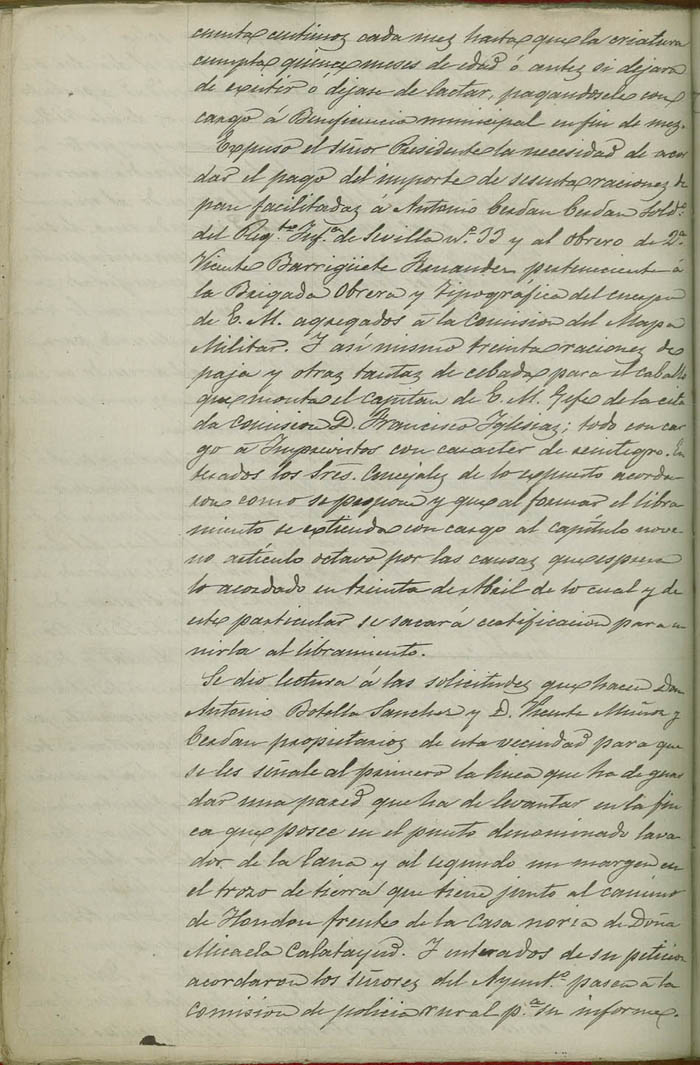 cuenta centimos cada mes hasta que la criatura
cumpla quince meses de edad ó antes si dejara
de existir ó dejase de lactar, pagandosele con
cargo á Beneficencia municipal en fin de mes.
Expuso el señor Presidente la necesidad de acor
dar el pago del importe de sesenta raciones de
pan facilitadas á Antonio Cerdan Cerdan Sold.º
del Reg.to Inf.a de Sevilla nº 33 y al obrero de 2.a
Vicente Barrigüete Hernandez perteneciente á
la Brigada Obrera y Tipográfica del cuerpo
de E. M. agregados á la Comision del Mapa
Militar. Y asi mismo treinta raciones de
paja y otras tantas de cebada para el caballo
que monta el capitan de E. M. Gefe de la cita
da comision D. Francisco Iglesias; todo con car
go á Imprevistos con caracter de reintegro. En
terados los Sres. Concejales de lo expuesto acorda
ron como se propone y que al formar el libra
miento se extienda con cargo al capítulo nove
no artículo octavo por las causas que espresa
lo acordado en treinta de Abril de lo cual y de
este particular se sacará certificacion para u
nirla al libramiento.
Se dio lectura á las solicitudes que hacen Don
Antonio Botella Sanchez y D. Vicente Muñoz y
Cerdan propietarios de esta vecindad para que
se les señale al primero la linea que ha de guar
dar una pared que ha de levantar en la fin
ca que posee en el punto denominado lava
dor de la y al segundo un margen en
el trozo de tierra que tiene junto al camino
de Hondon frente de la Casa noria de Doña
Micaela Calatayud. Y enterados de su peticion
acordaron los señores del Ayunt.º pasen á la
Comision de policia rural p.a su informe.